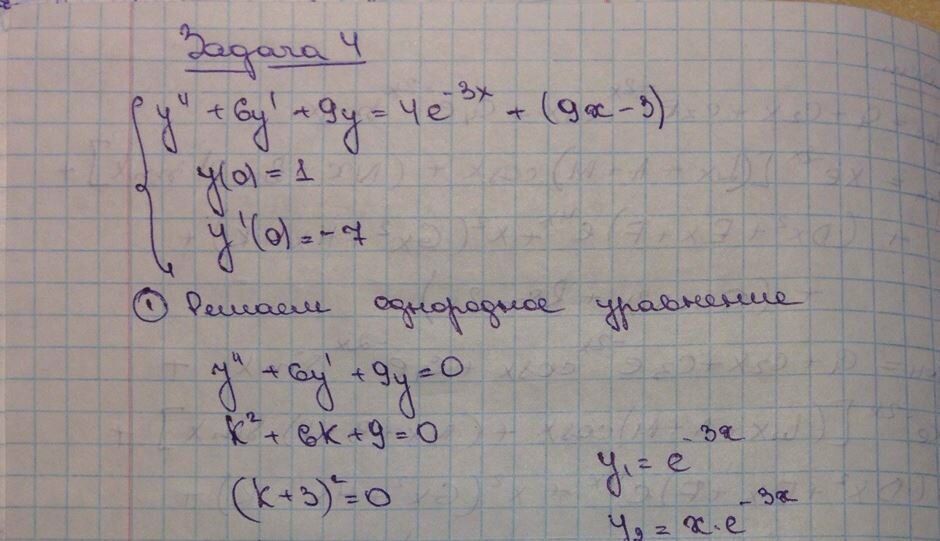 Задача 4
y'' + 6y' + 9y = 4e^{-3x} + (9x - 3)
y(0) = 1
y'(0) = -7
① Решаем однородное уравнение
y'' + 6y' + 9y = 0
k² + 6k + 9 = 0
y₁ = e^{-3x}
(k + 3)² = 0
y₂ = x·e^{-3x}